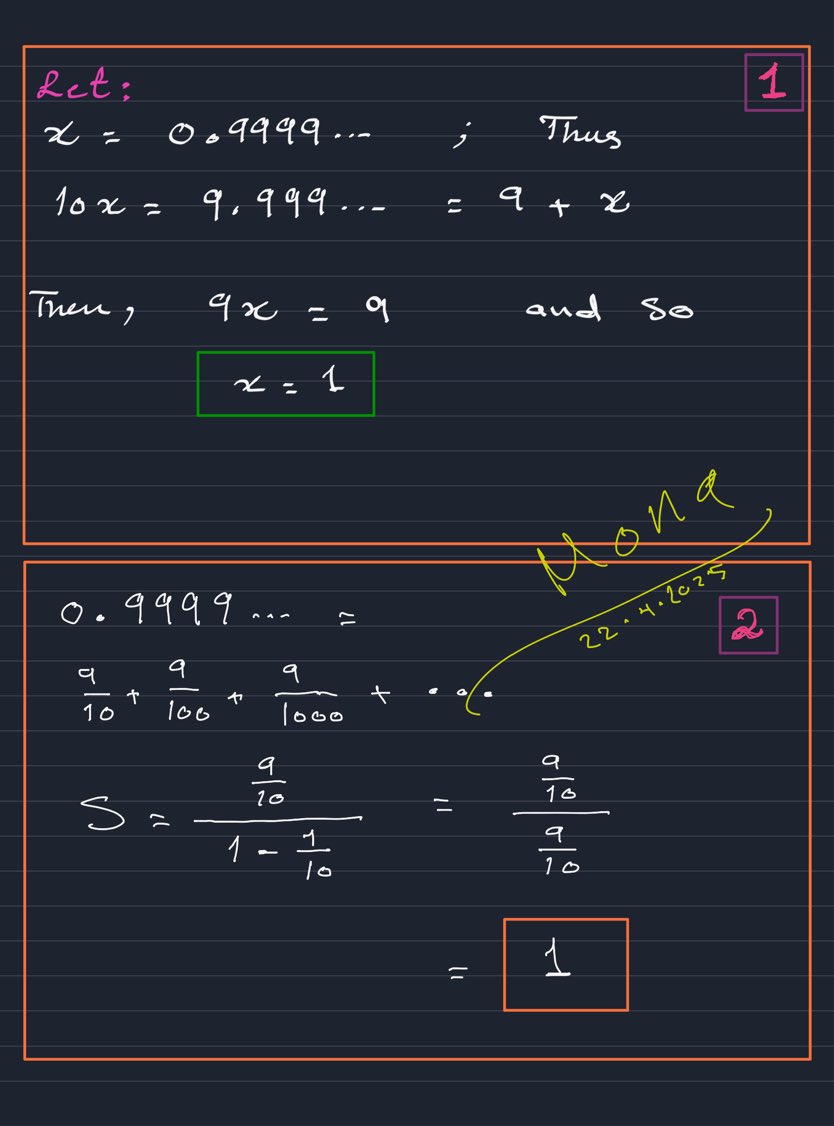 Let:
1
x = 0.9999... ; Thus
10x = 9.999... = 9 + x
Then, 9x = 9 and so
x = 1
Mona
22.4.2025
2
0.9999... =
9/10 + 9/100 + 9/1000 + ...
S = (9/10)/(1 - 1/10) = (9/10)/(9/10)
= 1